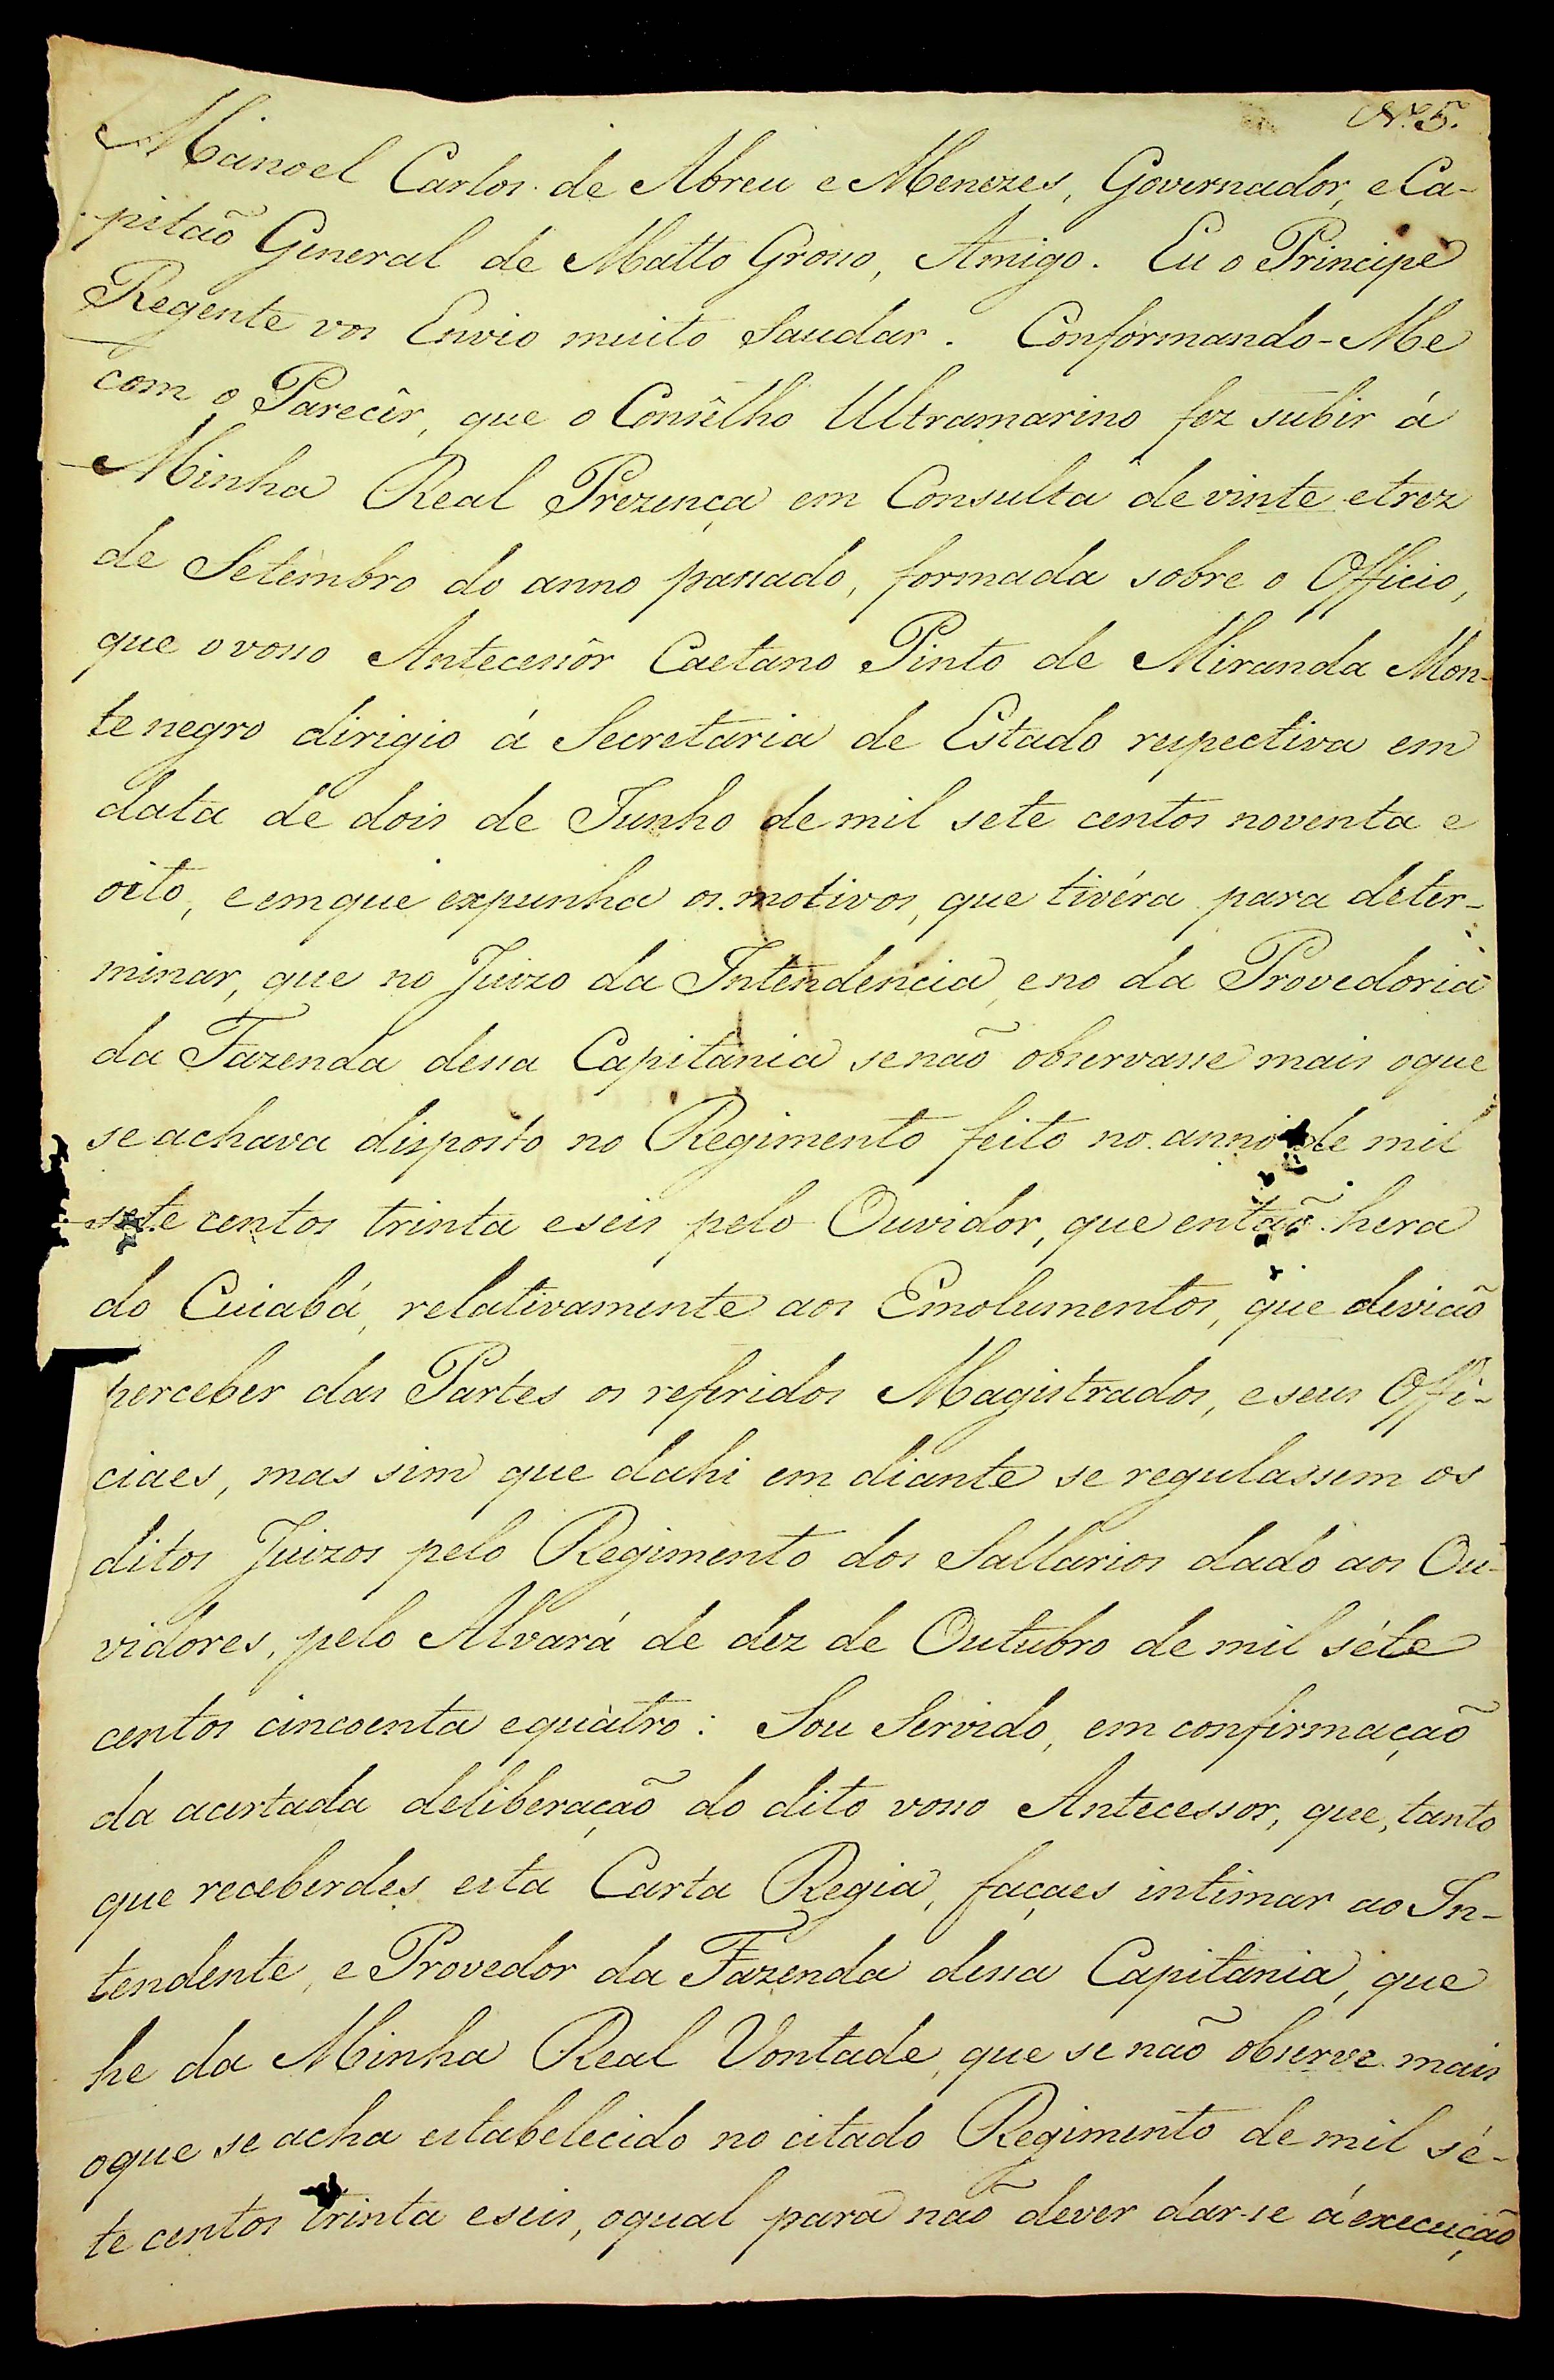 Nº. 5.
Manoel Carlos de Abreu e Menezes, Governador, e Ca-
pitaõ General de Matto Grosso, Amigo. Eu o Principe
Regente vos Envio muito Saudar. Conformando-Me
com o Parecêr, que o Consêlho Ultramarino fez subir á
Minha Real Prezença em Consulta de vinte e trez
de Setembro do anno passado, formada sobre o Officio,
que o vosso Antecessôr Caetano Pinto de Miranda Mon-
te negro dirigio á Secretaria de Estado respectiva em
data de dois de Junho de mil sete centos noventa e
oito, e em que expunha os motivos, que tivéra para deter-
minar, que no Juizo da Intendencia, e no da Provedoria
da Fazenda dessa Capitania se naõ observasse mais o que
se achava disposto no Regimento feito no anno de mil
sete centos trinta e seis pelo Ouvidor, que entaõ hera
do Cuiabá, relativamente aos Emolumentos, que deviaõ
perceber das Partes os referidos Magistrados, e seus Offi-
ciaes, mas sim que dahi em diante se regulassem os
ditos Juizos pelo Regimento dos Sallarios dado aos Ou-
vidores, pelo Alvará de dez de Outubro de mil séte
centos cincoenta e quatro: Sou Servido, em confirmaçaõ
da acertada deliberaçaõ do dito vosso Antecessor, que, tanto
que receberdes esta Carta Regia, façaes intimar ao In-
tendente, e Provedor da Fazenda dessa Capitania, que
he da Minha Real Vontade, que se naõ observe mais
o que se acha estabelecido no citado Regimento de mil sé-
te centos trinta e seis, o qual para naõ dever dar-se á execuçaõ